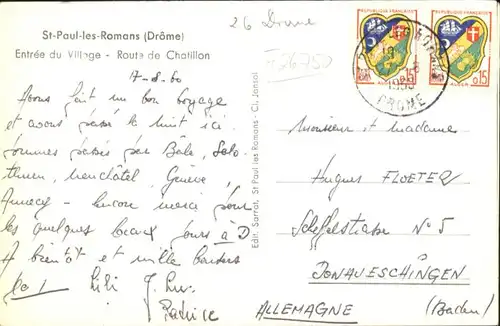 26 Drome
St-Paul-les-Romans (Drôme)
Entrée du Village - Route de Chatillon
F 26750
17-8-60
Avons fait un bon voyage
et avons passé la nuit ici.
Sommes passés par Bâle, Solo-
thurn, Neuchâtel, Genève,
Annecy - Encore merci pour
les quelques beaux jours à D
A bientôt et mille baisers
Lili
Patrice
Edit. Sorrat, St Paul les Romans - Cl. Jansol
REPUBLIQUE FRANÇAISE
0,15
ALGER
REPUBLIQUE FRANÇAISE
0,15
ALGER
DROME
Monsieur et Madame
Hugues FLOETER
Scheffelstrasse N° 5
DONAUESCHINGEN
ALLEMAGNE (Baden)